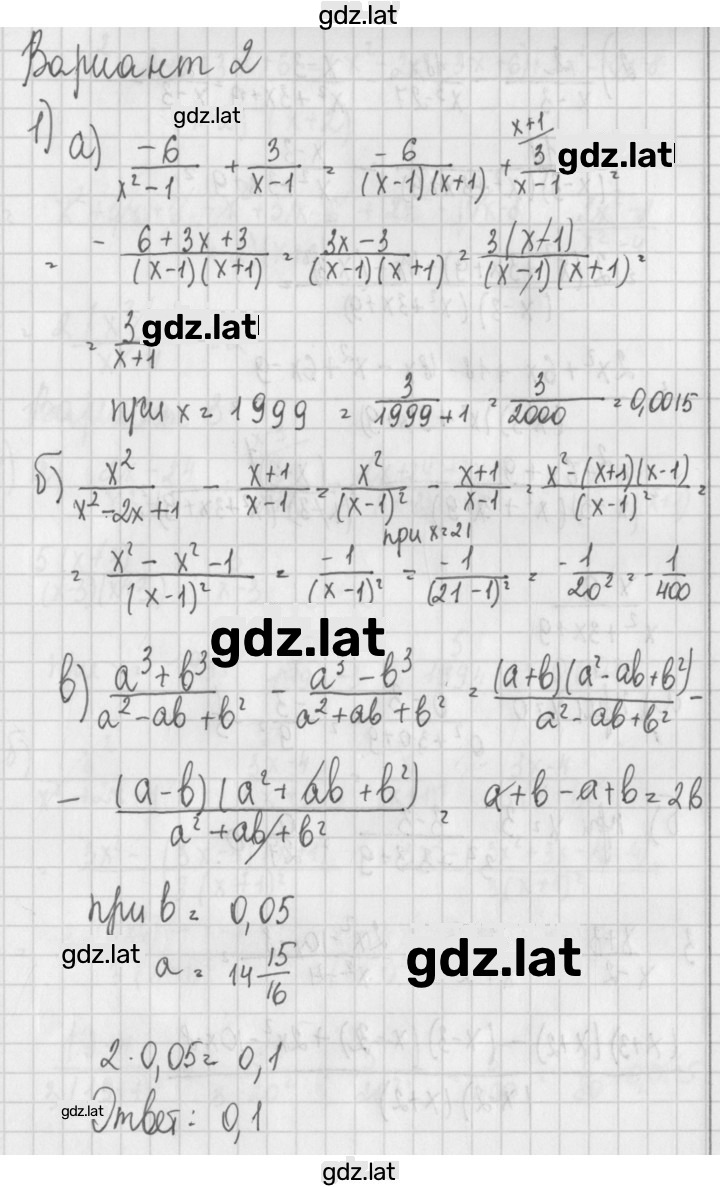 gdz.lat
Вариант 2
gdz.lat
1) а) -6/(x²-1) + 3/(x-1) = -6/((x-1)(x+1)) + 3/(x-1) (x+1 gdz.lat =
= - 6+3x+3/((x-1)(x+1)) = 3x-3/((x-1)(x+1)) = 3(x-1)/((x-1)(x+1)) =
= 3/(x+1) gdz.lat
при x = 1999 = 3/(1999+1) = 3/2000 = 0,0015
б) x²/(x²-2x+1) - (x+1)/(x-1) = x²/(x-1)² - (x+1)/(x-1) = (x²-(x+1)(x-1))/(x-1)² =
при x=21
= (x²-x²-1)/(x-1)² = -1/(x-1)² = -1/(21-1)² = -1/20² = -1/400
gdz.lat
в) (a³+b³)/(a²-ab+b²) - (a³-b³)/(a²+ab+b²) = (a+b)(a²-ab+b²)/(a²-ab+b²) -
- (a-b)(a²+ab+b²)/(a²+ab+b²) = a+b-a+b = 2b
при b = 0,05
gdz.lat a = 14 15/16 gdz.lat
2·0,05 = 0,1
gdz.lat Ответ: 0,1
gdz.lat